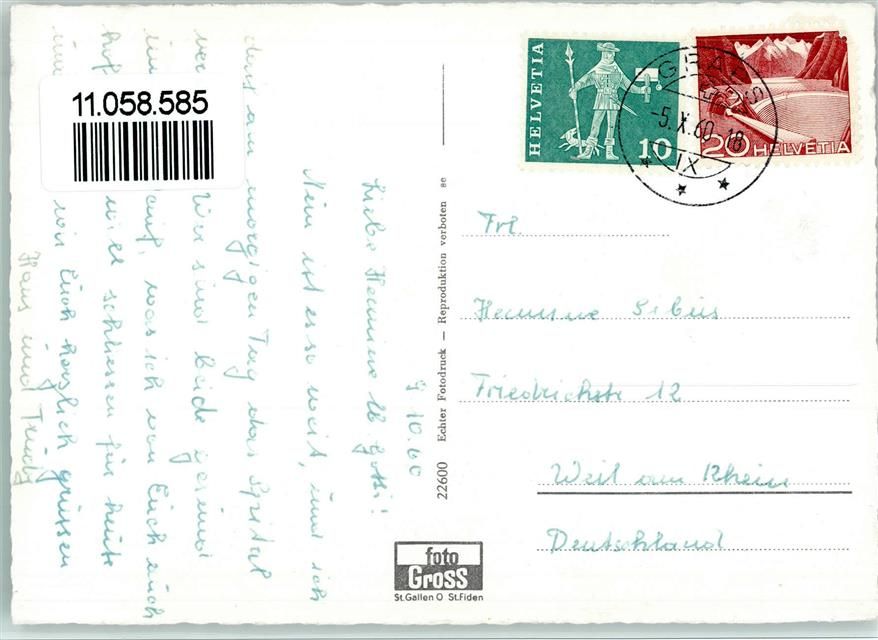 11.058.585
HELVETIA
10
20 HELVETIA
GRABS
-5.X.60.-18
IX
9.10.60
Liebe Hermine & Gotti!
Nun ist es so weit, und ich
darf am morgigen Tag das Spital
ver Wir sind beide gesund
auf, was ich von Euch auch
hof will schliessen für heute
von Euch herzlich grüssen
Hans und Trudy
22600 Echter Fotodruck — Reproduktion verboten
foto
Gross
St.Gallen O St.Fiden
Frl.
Hermine
Friedrichstr 12
Weil am Rhein
Deutschland